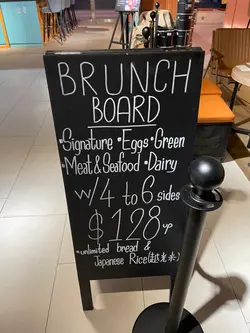 BRUNCH
BOARD
•Signature •Eggs •Green
•Meat & Seafood •Dairy
w/ 4 to 6 sides
$128 up
•unlimited bread &
Japanese Rice (越光米)